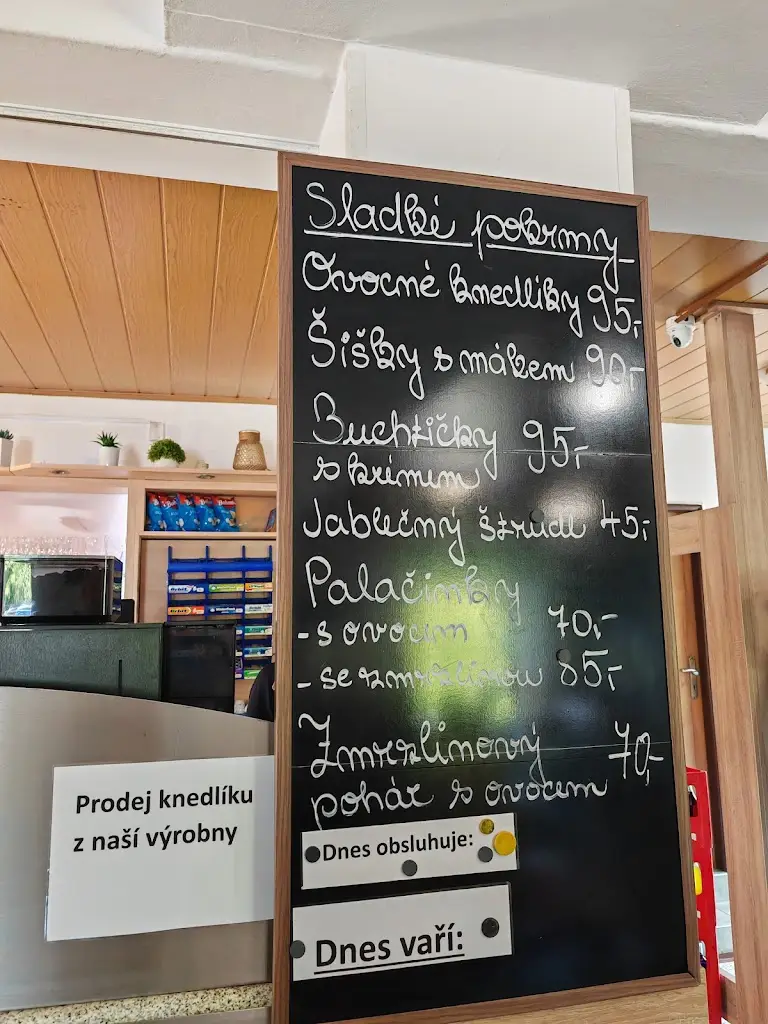 Sladké pokrmy
Ovocné knedlíky 95,-
Šišky s mákem 90,-
Buchtičky 95,-
s krémem
Jablečný štrúdl 45,-
Palačinky
- s ovocem 70,-
- se zmrzlinou 85,-
Zmrzlinový 70,-
pohár s ovocem
Dnes obsluhuje:
Dnes vaří:
Prodej knedlíku
z naší výrobny
Orbit
Orbit